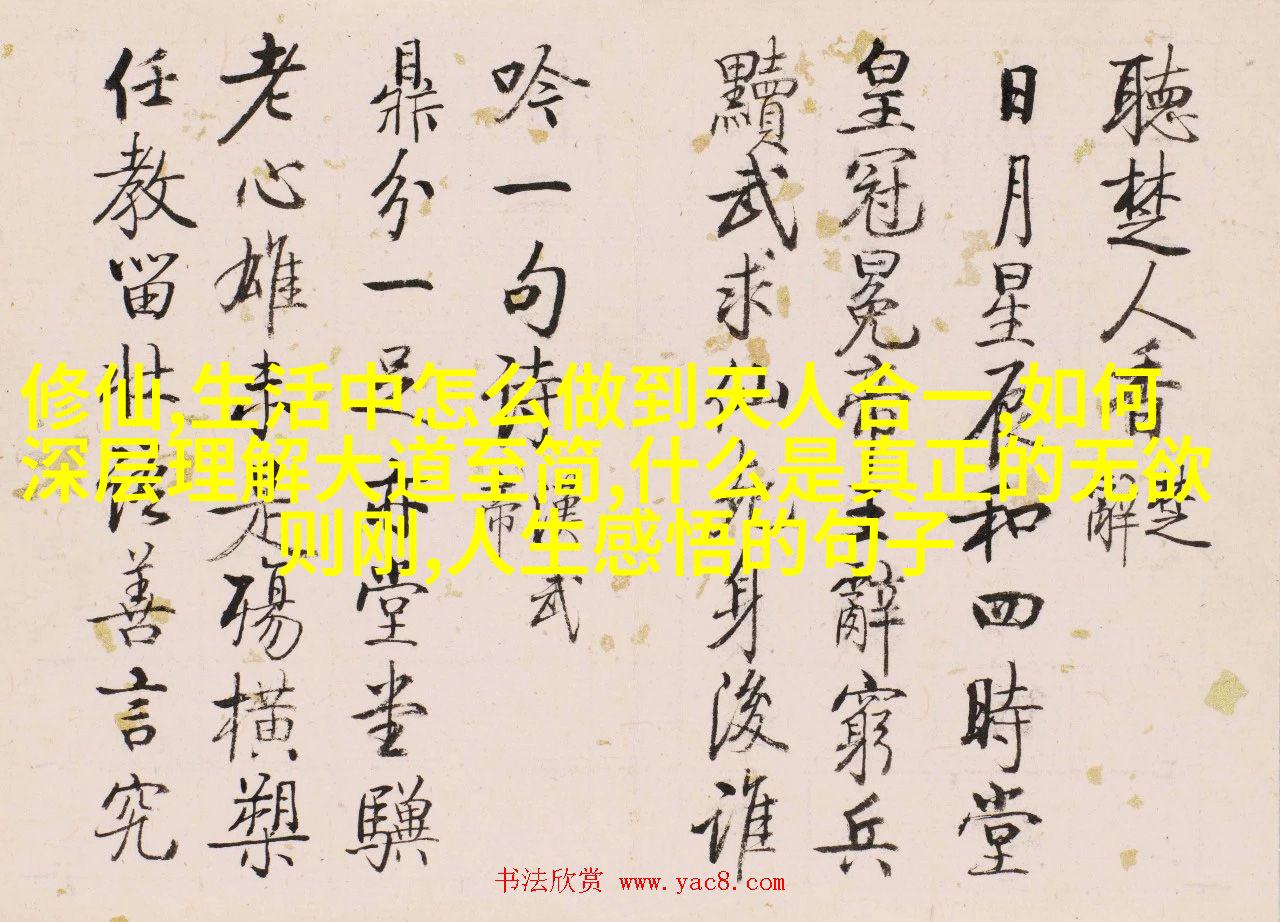 聽楚人
楚
解
日月星辰和四時堂
皇冠冕帝王辭窮兵
黷武求仙身後誰
吟一句詩
漢武
帝
鼎分一足堂堂驥
老心雄殤橫槊
任教留此善言究
修仙,生活中怎么做到天人合一,如何
深层理解大道至简,什么是真正的无欲
则刚,人生感悟的句子
书法欣赏 www.yac8.com